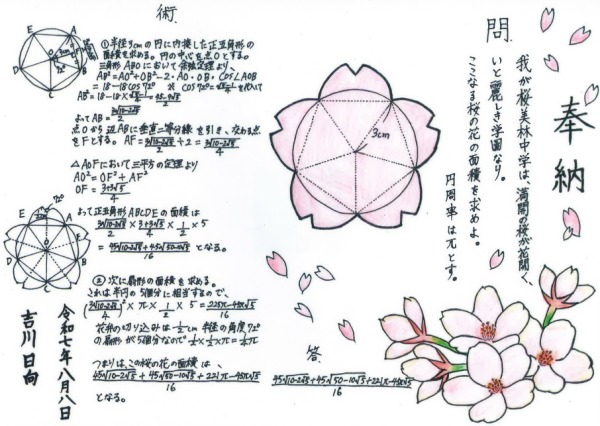 奉納
問
我が桜美林中学は、満開の桜が花開く、
いと麗しき学園なり。
ここなる桜の花の面積を求めよ。
円周率はπとす。
3cm
答
(45√(10-2√5)+45√(50-10√5)+221π-45π√5)/16
術
①半径3cmの円に内接した正五角形の
面積を求める。円の中心を点Oとする。
三角形ABOにおいて余弦定理より、
AB²=AO²+OB²-2・AO・OB・cos∠AOB
=18-18cos72°
AB²=18-18×(√5-1)/4=(45-9√5)/2
よってAB=3√(10-2√5)/2
点Oから辺ABに垂直二等分線を引き、交わる点
をFとする。AF=3√(10-2√5)/2÷2=3√(10-2√5)/4
△AOFにおいて三平方の定理より
AO²=OF²+AF²
OF=(3+3√5)/4
よって正五角形ABCDEの面積は
3√(10-2√5)/2×(3+3√5)/4×1/2×5
=(45√(10-2√5)+45√(50-10√5))/16 となる。
②次に扇形の面積を求める。
これは半円の5個分に相当するので、
(3√(10-2√5)/4)²×π×1/2×5=(225π-45π√5)/16
花弁の切り込みは1/2cm半径の角度72°
の扇形が5個分なので1/2×1/2×π=1/4π
つまりはこの桜の花の面積は、
(45√(10-2√5)+45√(50-10√5)+221π-45π√5)/16
となる。
令和七年八月八日
吉川日向